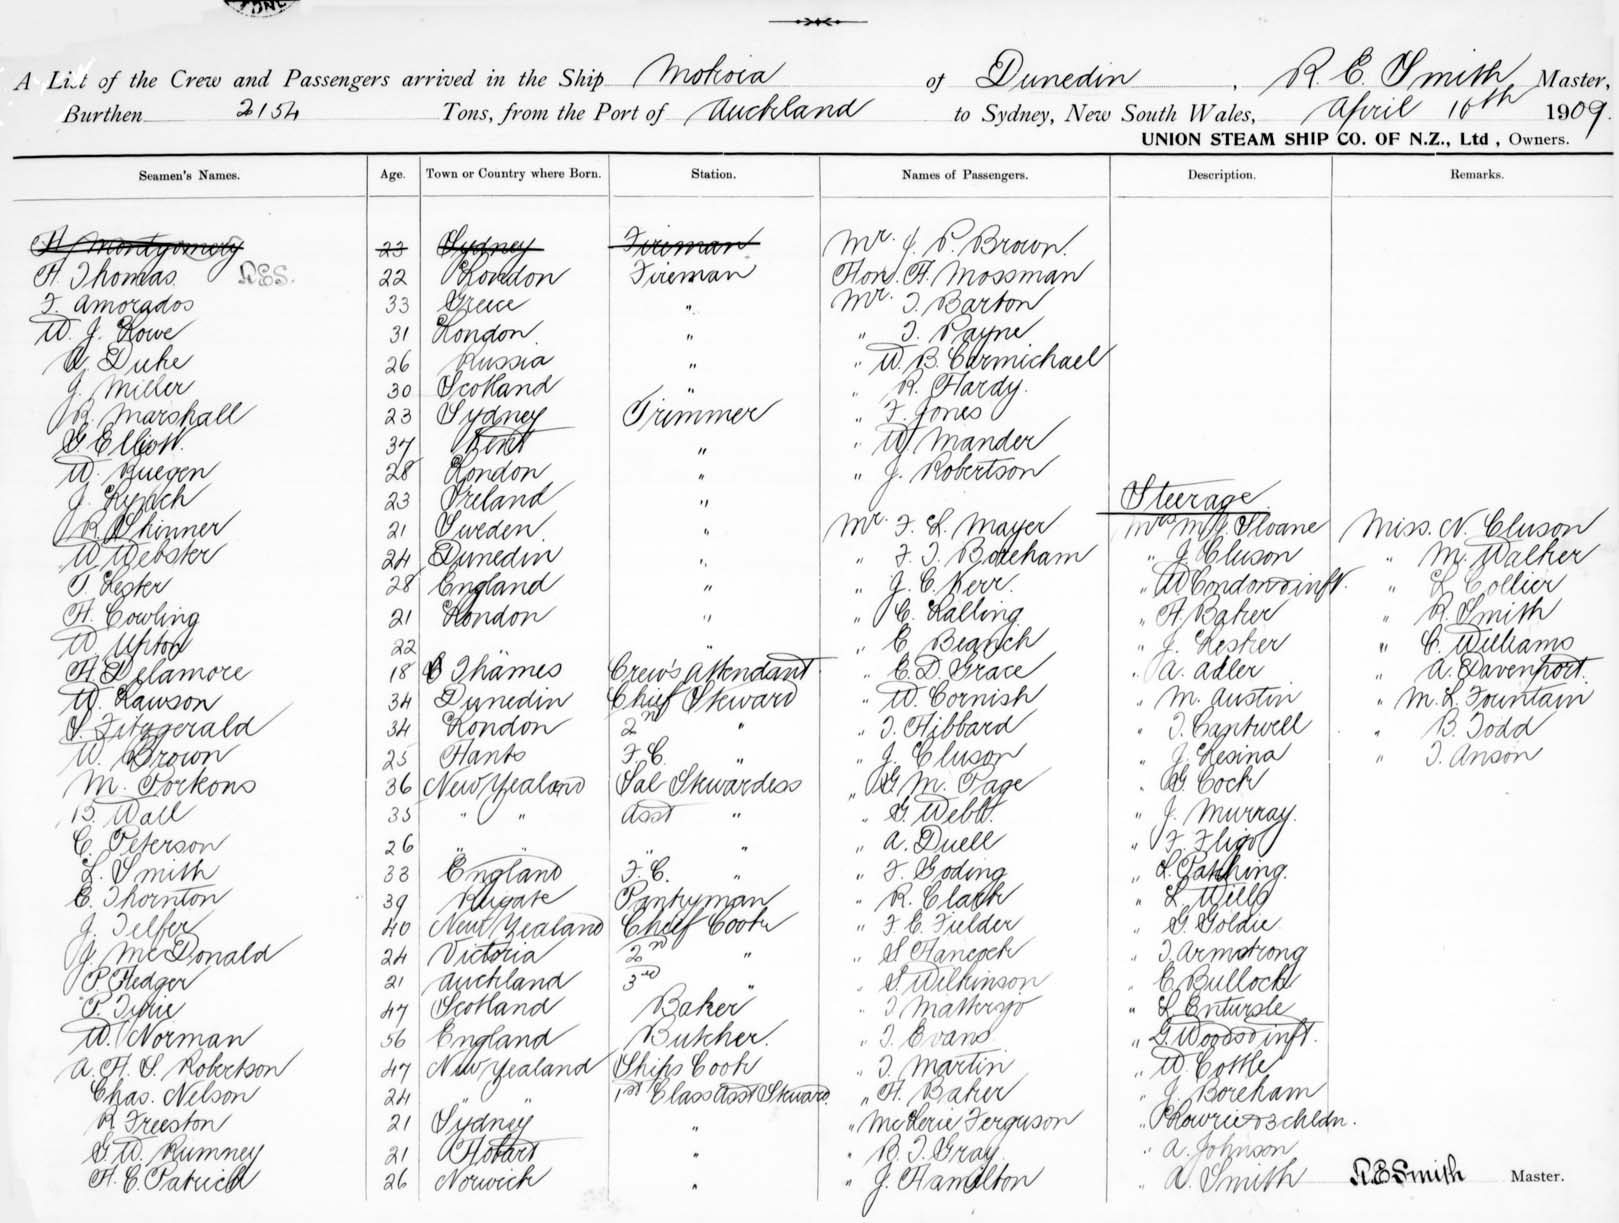 A List of the Crew and Passengers arrived in the Ship Mokoia of Dunedin, R. E. Smith, Master,
Burthen 2154 Tons, from the Port of Auckland to Sydney, New South Wales, April 10th 1909.
UNION STEAM SHIP CO. OF N.Z., Ltd, Owners.
Seamen's Names. Age. Town or Country where Born. Station. Names of Passengers. Description. Remarks.
Montgomery 23 Sydney Fireman Mr. J. P. Brown.
H. Thomas. R.E.S. 22 London Fireman Hon. H. Mossman
F. Amorados 33 Greece " Mr. T. Barton
W. J. Lowe 31 London " " T. Payne
A. Duke 26 Russia " " W. B. Carmichael
J. Miller 30 Scotland " " R. Hardy.
R. Marshall 23 Sydney Trimmer " F. Jones
G. Elliott. 37 Kent " " W. Mander
W. Ruegen 28 London " " J. Robertson
J. Lynch 23 Ireland " Steerage
R. Skinner 21 Sweden " Mr. F. L. Mayer Mrs M. J. Sloane Miss. N. Cluson
W Webster 24 Dunedin " " F. T. Boreham " J Cluson " M. Walker
T. Lester 28 England " " J. C. Kerr. " W Condon & inft. " L Collier
H. Cowling 21 London " " C. Lalling " H. Baker " R. Smith
W Upton 22 " " E Branch " J. Lesker " C. Williams
H. Delamore 18 Thames Crew's Attendant " E. D. Grace " A. Adler " A. Davenport.
W. Lawson 34 Dunedin Chief Steward " W. Cornish " M. Austin " M. L. Fountain
S. Fitzgerald 34 London 2nd " " T. Hibbard " T. Cantwell " B. Todd
W. Brown 25 Hants F. C. " " J. Cluson " J. Lesina " T. Anson
M. Porkons 36 New Zealand Sal Stewardess " G. M. Page " G. Cock
B. Wall 35 " " Asst " " G. Webb. " J. Murray.
C. Peterson 26 " " " " " A. Duell " F. Fligo
L. Smith 33 England F. C. " " F. Goding " L. Patching.
E. Thornton 39 Reigate Pantryman " R. Clark " L Wills
J. Telfer 40 New Zealand Chief Cook " F. E. Fielder " G. Goldie
J. McDonald 24 Victoria 2nd " " S Hancock " T Armstrong
P. Hedger 21 Auckland 3rd " " S. Wilkinson " C Bullock
P. Tirie 47 Scotland Baker " T " L.
W. Norman 56 England Butcher. " T. Evans " G. Woods & inft.
A. H. S. Robertson 47 New Zealand Ships Cook " T. Martin " W. Cottle
Chas. Nelson 24 " " 1st Class Asst Steward. " H. Baker " J. Boreham
R. Freeston 21 Sydney " " McKerie Ferguson " P Lowrie & 3 chldn.
G. W. Rumney 21 Hobart " " B. T. Gray " A. Johnson
H. C. Patrick 26 Norwich " " J. Hamilton " A Smith R. E Smith Master.